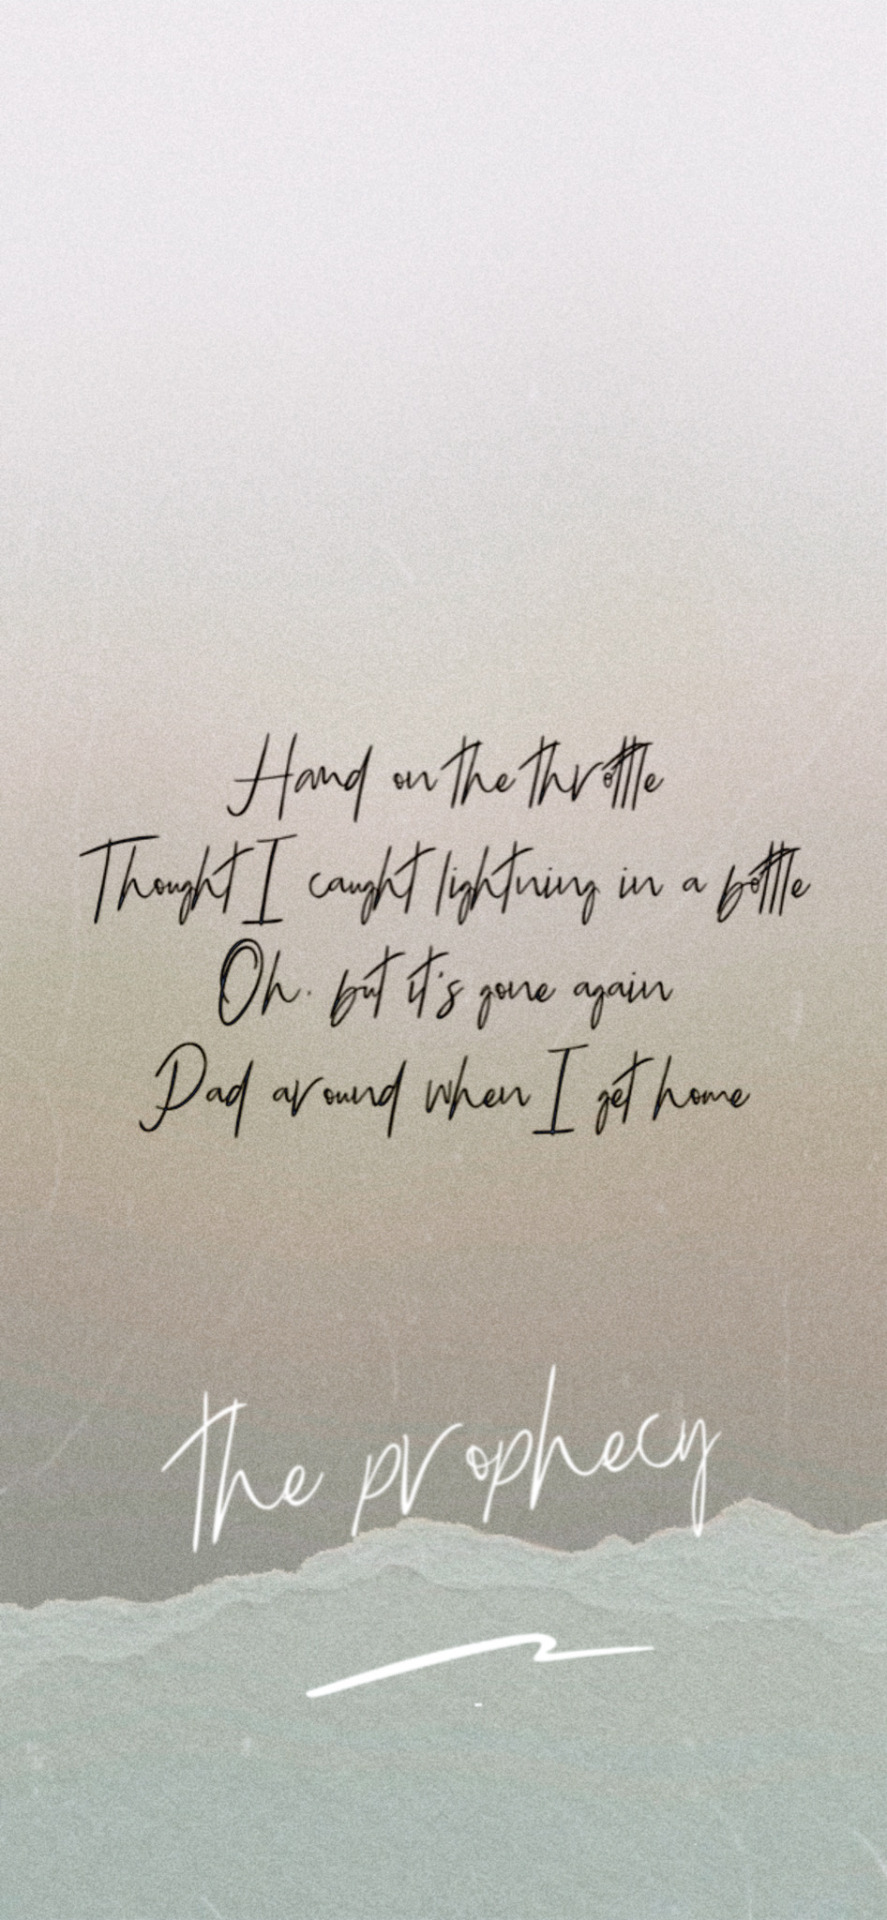 Hand on the throttle
Thought I caught lightning in a bottle
Oh, but it's gone again
Pad around when I get home
the prophecy